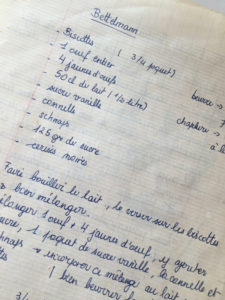 Bettelmann
- Biscottes ( 3/4 paquet)
- 1 oeuf entier
- 4 jaunes d'oeufs
- 50 cl du lait (1/2 litre)
- sucre vanille
- cannelle
- schnaps
- 125 gr du sucre
- cerises noires
beurre →
chapelure →
à l
Faire bouillir le lait, le verser sur les biscottes
→ bien mélanger.
élanger 1 oeuf, 4 jaunes d'oeuf, y ajouter
ucre, 1 paquet de sucre vanille, la cannelle et
chnaps → incorporer ce mélange au lait
! bien beurrer le
3/4